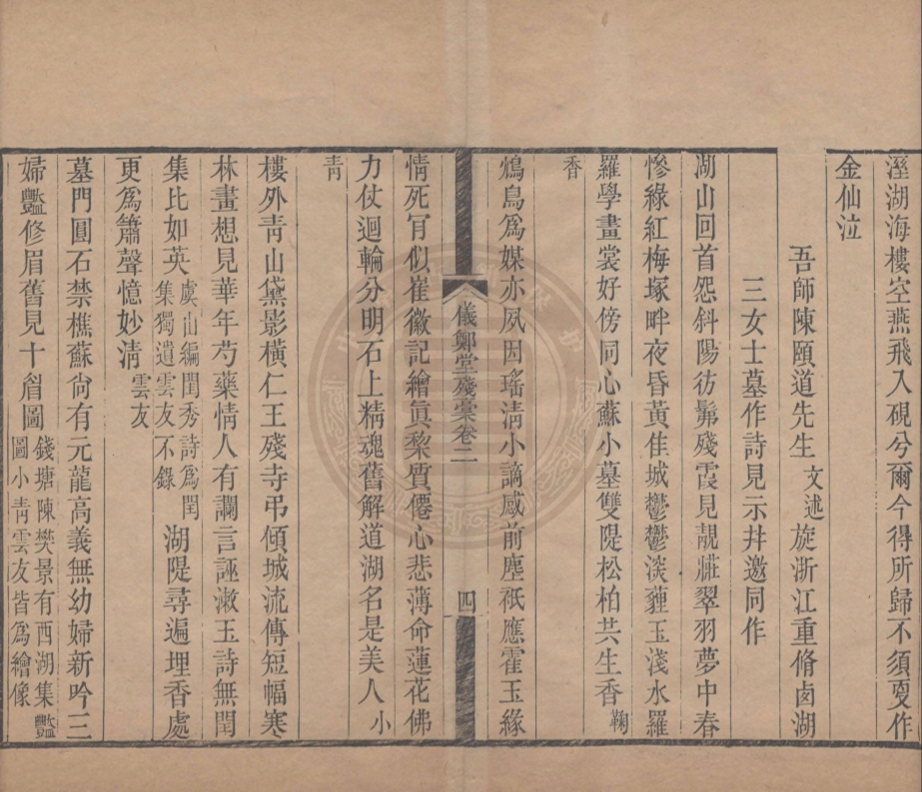 溼湖海樓空燕飛入硯兮爾今得所歸不須夏作
金仙泣
吾師陳頤道先生文述旋浙江重脩鹵湖
三女士墓作詩見示幷邀同作
湖山回首怨斜陽彷髴殘霞見靚糚翠羽夢中春
慘綠紅梅塚畔夜昏黃佳城鬱鬱淡薶玉淺水羅
羅學畫裳好傍同心蘇小墓雙隄松柏共生香鞠
香
鴆鳥爲媒亦夙因瑤淸小謫感前塵祇應霍玉緣
儀鄭堂殘稾卷二
四
情死肎似崔徽記繪眞黎質僊心悲薄命蓮花佛
力仗迴輪分明石上精魂舊解道湖名是美人小
靑
樓外靑山黛影橫仁王殘寺弔傾城流傳短幅寒
林畫想見華年芍藥情人有讕言誣漱玉詩無閏
集比如英虞山編閏秀詩爲閏
集獨遺雲友不錄湖隄尋遍埋香處
更爲簫聲憶妙淸雲友
墓門圓石禁樵蘇尙有元龍高義無幼婦新吟三
婦豔修眉舊見十睂圖錢塘陳樊景有西湖集豔
圖小靑雲友皆爲繪像